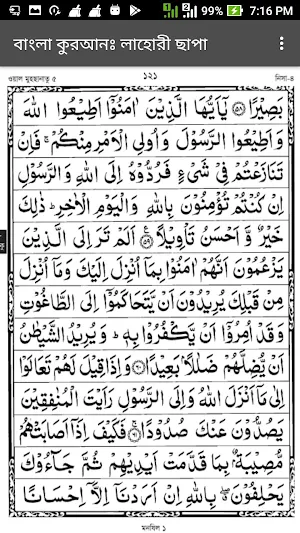 99% 7:16 PM
বাংলা কুরআনঃ লাহোরী ছাপা
ওয়াল মুহছানাতু ৫ ১২১ নিসা-৪
بَصِيْرًا ﴿۵۸﴾ يٰۤاَيُّهَا الَّذِيْنَ اٰمَنُوْۤا اَطِيْعُوا اللّٰهَ
وَاَطِيْعُوا الرَّسُوْلَ وَاُولِى الْاَمْرِ مِنْكُمْ ۚ فَاِنْ
تَنَازَعْتُمْ فِيْ شَيْءٍ فَرُدُّوْهُ اِلَى اللّٰهِ وَالرَّسُوْلِ
اِنْ كُنْتُمْ تُؤْمِنُوْنَ بِاللّٰهِ وَالْيَوْمِ الْاٰخِرِ ؕ ذٰلِكَ
خَيْرٌ وَّ اَحْسَنُ تَاْوِيْلًا ﴿۵۹﴾ اَلَمْ تَرَ اِلَى الَّذِيْنَ
يَزْعُمُوْنَ اَنَّهُمْ اٰمَنُوْا بِمَاۤ اُنْزِلَ اِلَيْكَ وَمَاۤ اُنْزِلَ
مِنْ قَبْلِكَ يُرِيْدُوْنَ اَنْ يَّتَحَاكَمُوْۤا اِلَى الطَّاغُوْتِ
وَقَدْ اُمِرُوْۤا اَنْ يَّكْفُرُوْا بِهٖ ؕ وَيُرِيْدُ الشَّيْطٰنُ
اَنْ يُّضِلَّهُمْ ضَلٰلًاۢ بَعِيْدًا ﴿۶۰﴾ وَاِذَا قِيْلَ لَهُمْ تَعَالَوْا
اِلٰى مَاۤ اَنْزَلَ اللّٰهُ وَاِلَى الرَّسُوْلِ رَاَيْتَ الْمُنٰفِقِيْنَ
يَصُدُّوْنَ عَنْكَ صُدُوْدًا ﴿۶۱﴾ فَكَيْفَ اِذَاۤ اَصَابَتْهُمْ
مُّصِيْبَةٌۢ بِمَا قَدَّمَتْ اَيْدِيْهِمْ ثُمَّ جَآءُوْكَ
يَحْلِفُوْنَ ۖ بِاللّٰهِ اِنْ اَرَدْنَاۤ اِلَّاۤ اِحْسَانًا
মনযিল ১